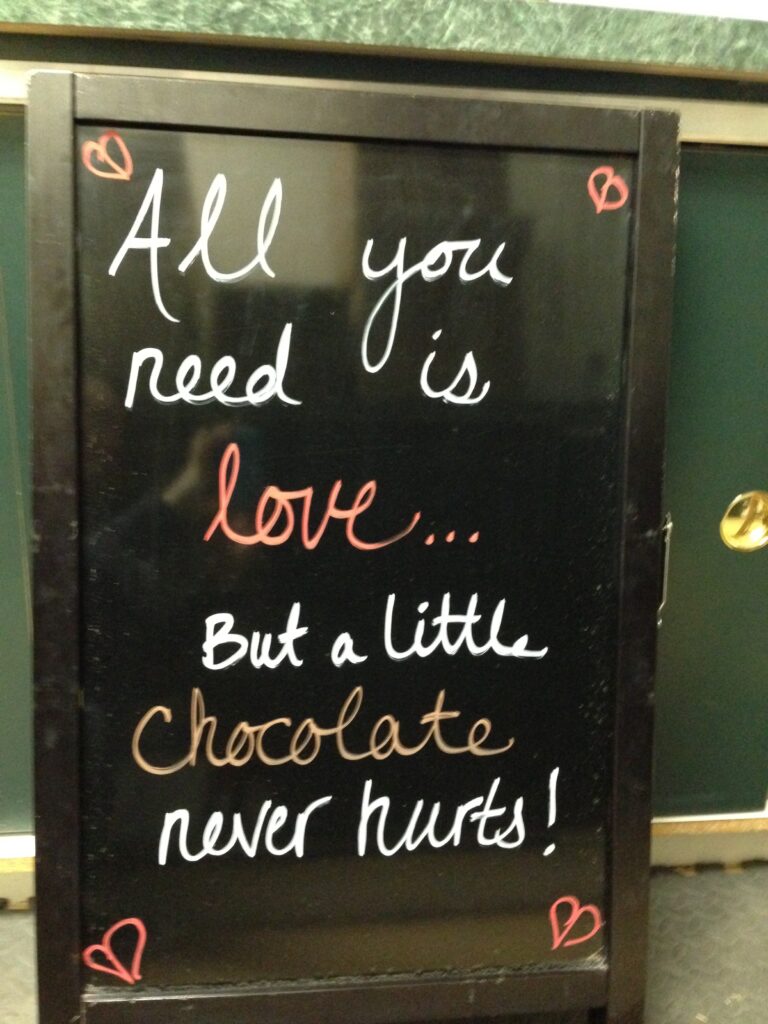 All you
need is
love...
But a little
chocolate
never hurts!